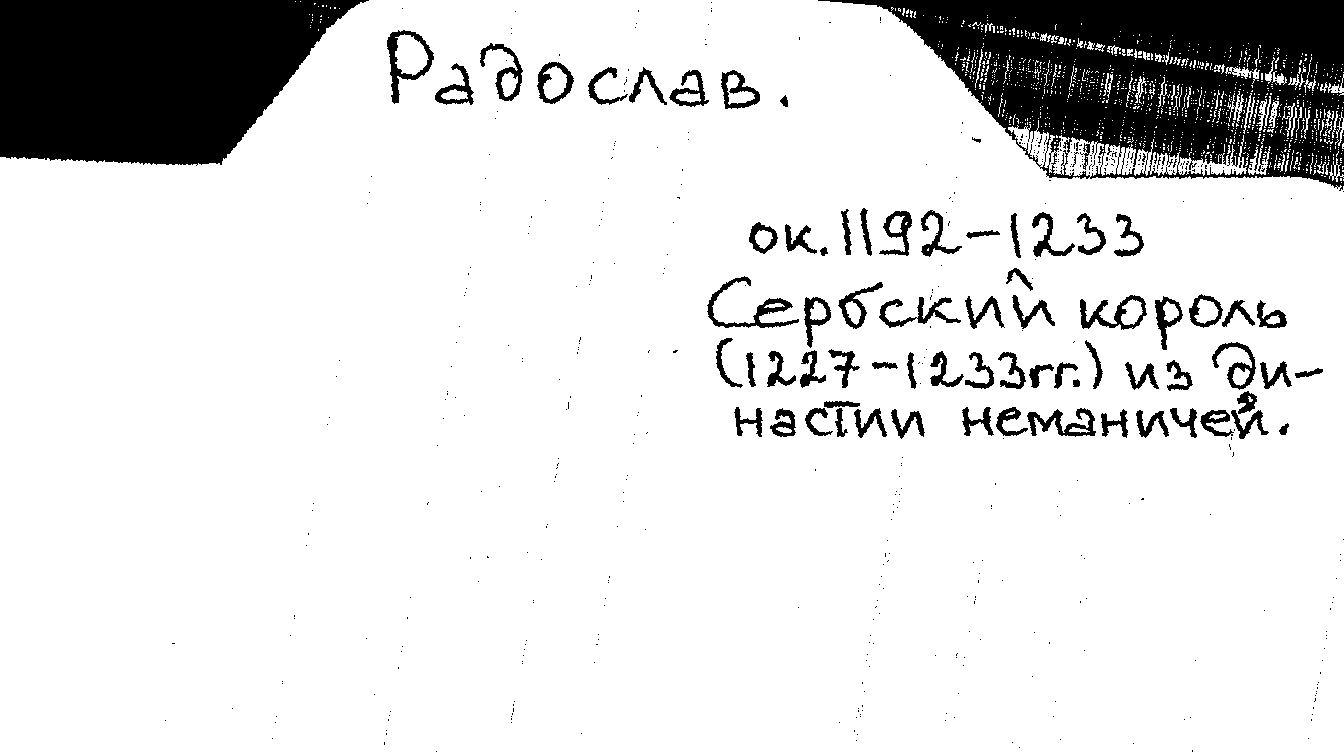 Радослав.
ок. 1192-1233
Сербский король
(1227-1233гг.) из ди-
настии неманичей.